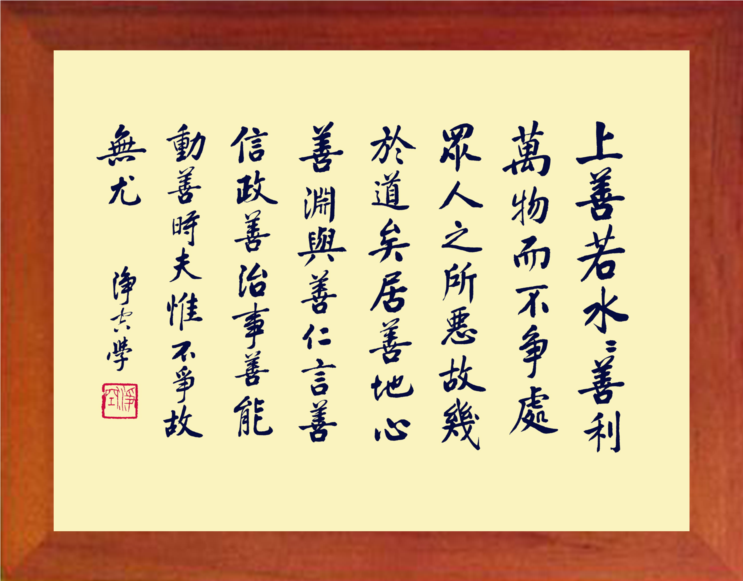 上善若水〻善利
萬物而不爭處
眾人之所惡故幾
於道矣居善地心
善淵與善仁言善
信政善治事善能
動善時夫惟不爭故
無尤
淨空學
淨空